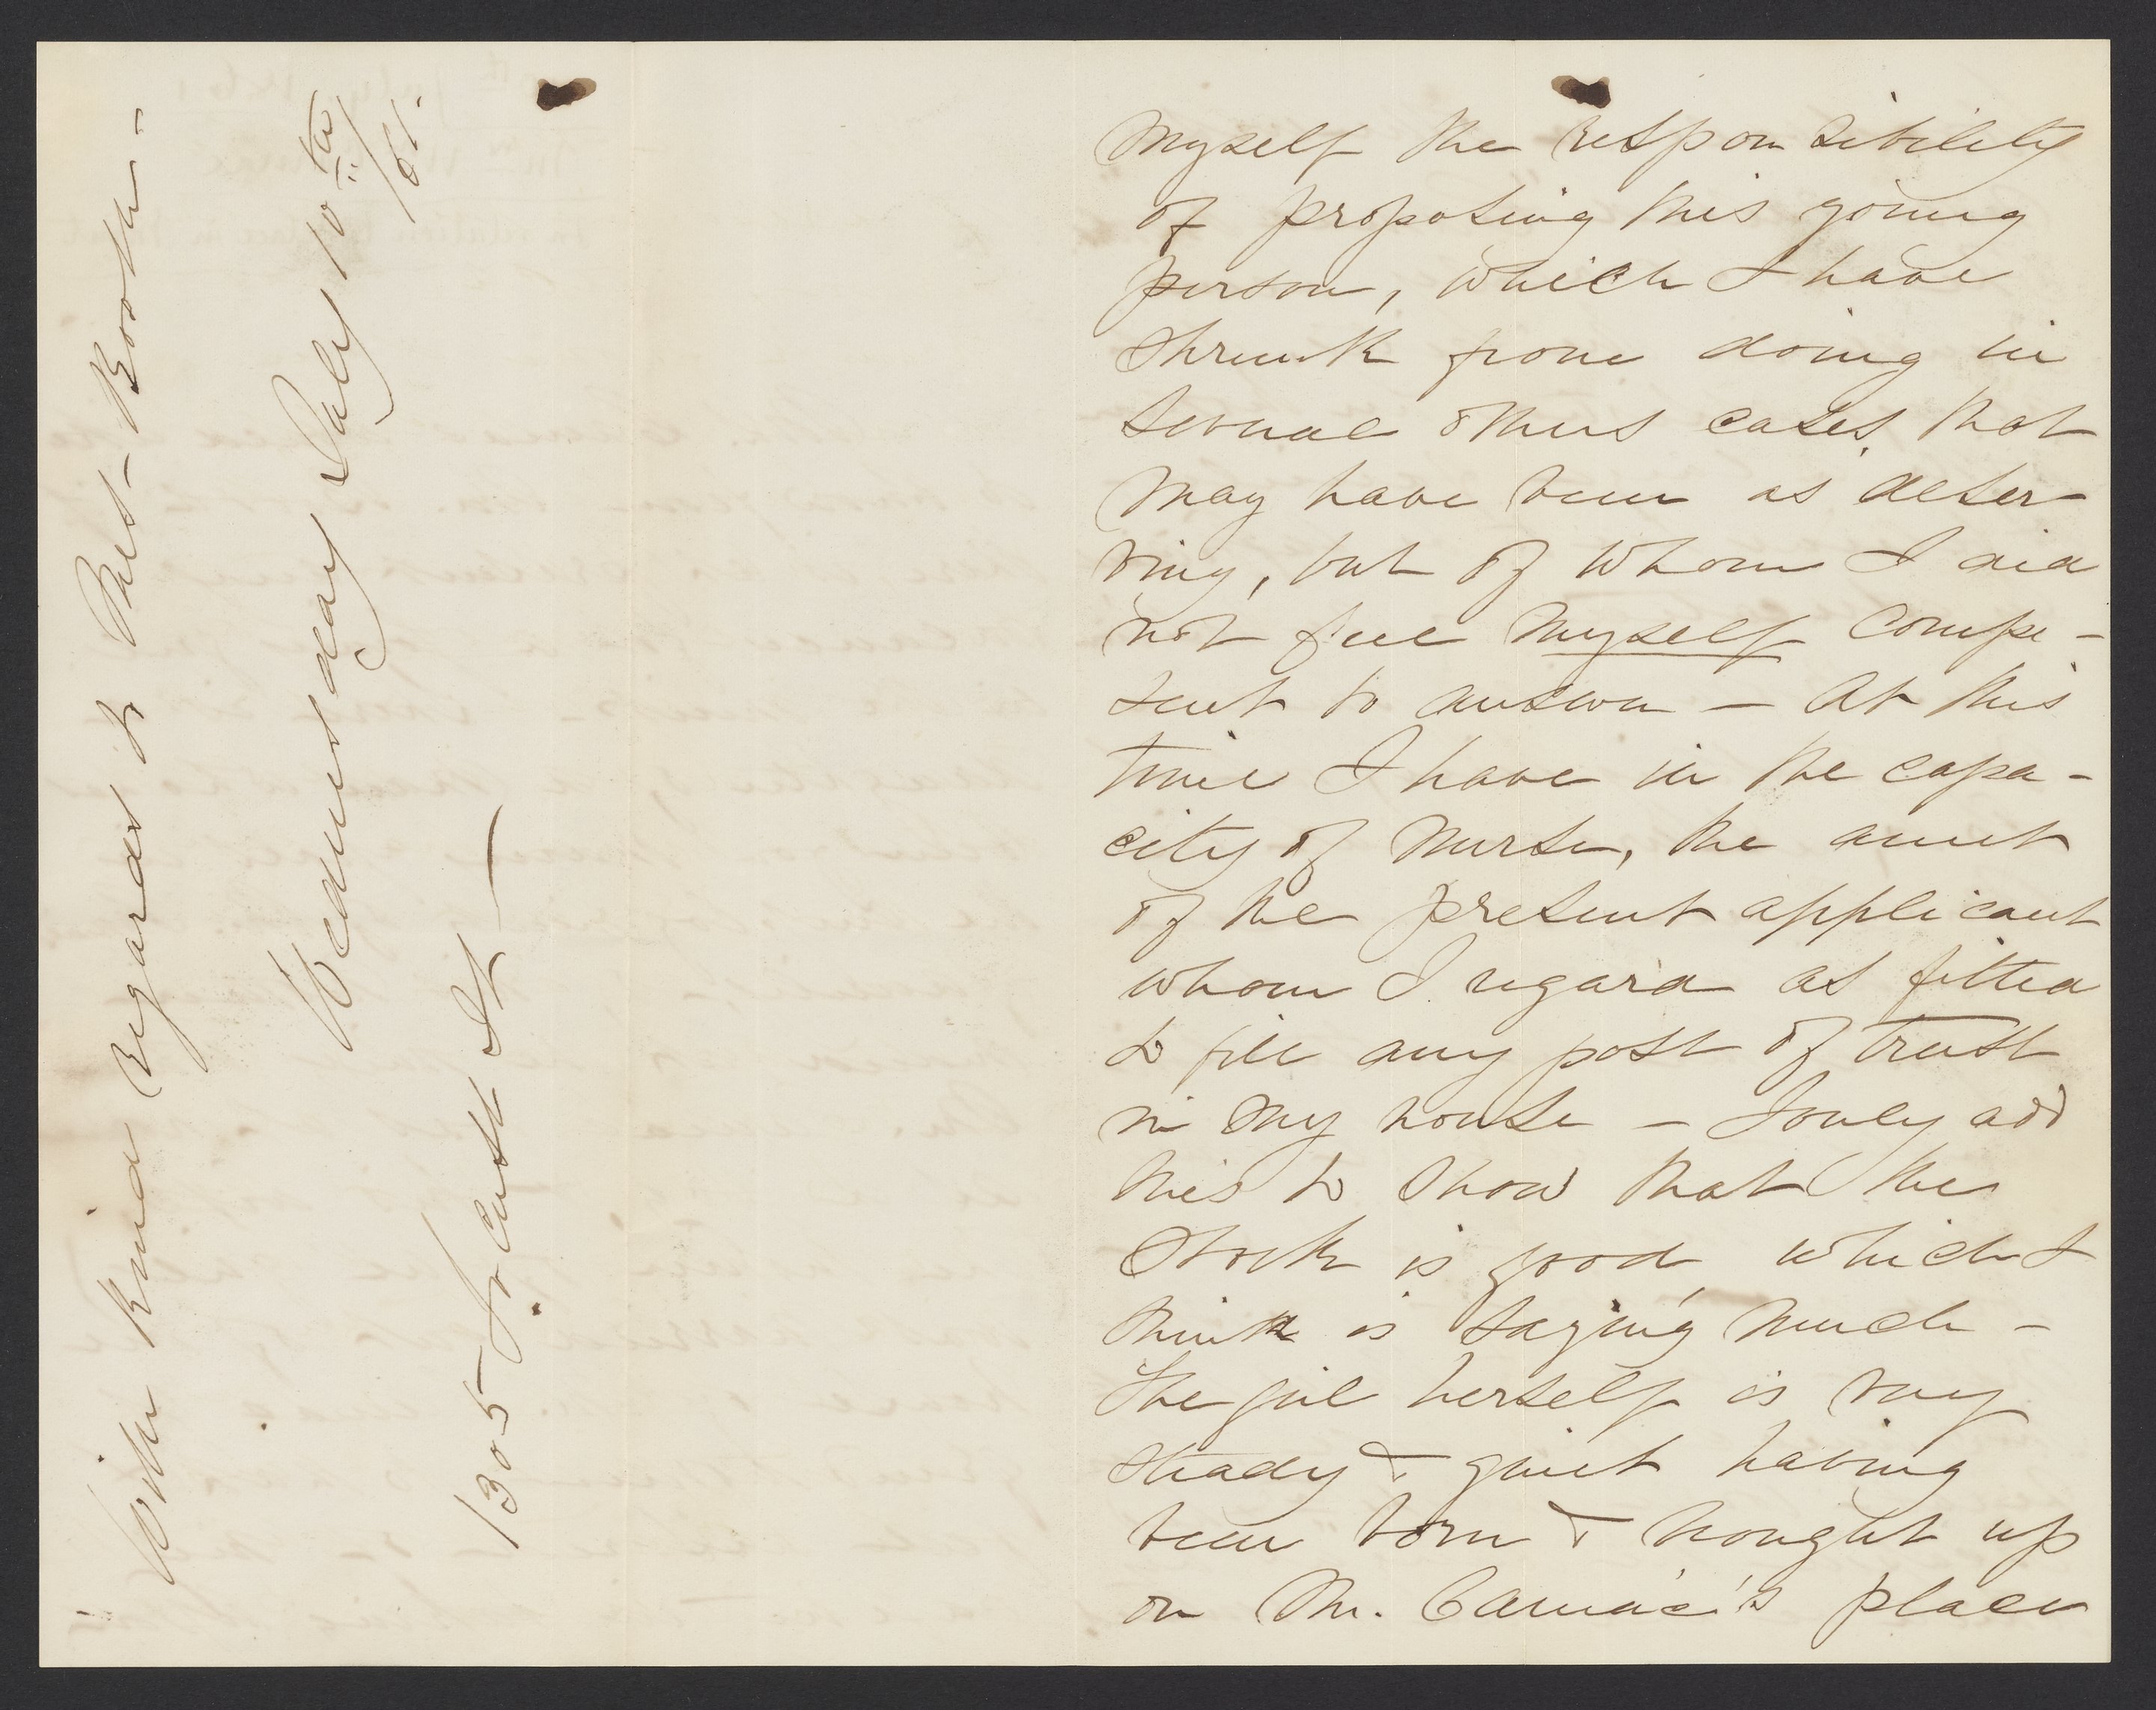 myself the respon sibility
of proposing this young
person, which I have
shrunk from doing in
several others cases, that
may have been as deser-
ving, but of whom I did
not feel myself compe-
tent to answer – At this
time I have in the capa-
city of Nurse, the aunt
of the present applicant
whom I regard as fitted
to fill any post of trust
in my house – I only add
this to show that the
Stock is good, which I
think is saying much –
The girl herself is very
steady & quiet having
been born & brought up
on Mr. Camác's place
With kind regards to Mrs. Booth –
Wednesday July 10th /61.
1305 Locust St –